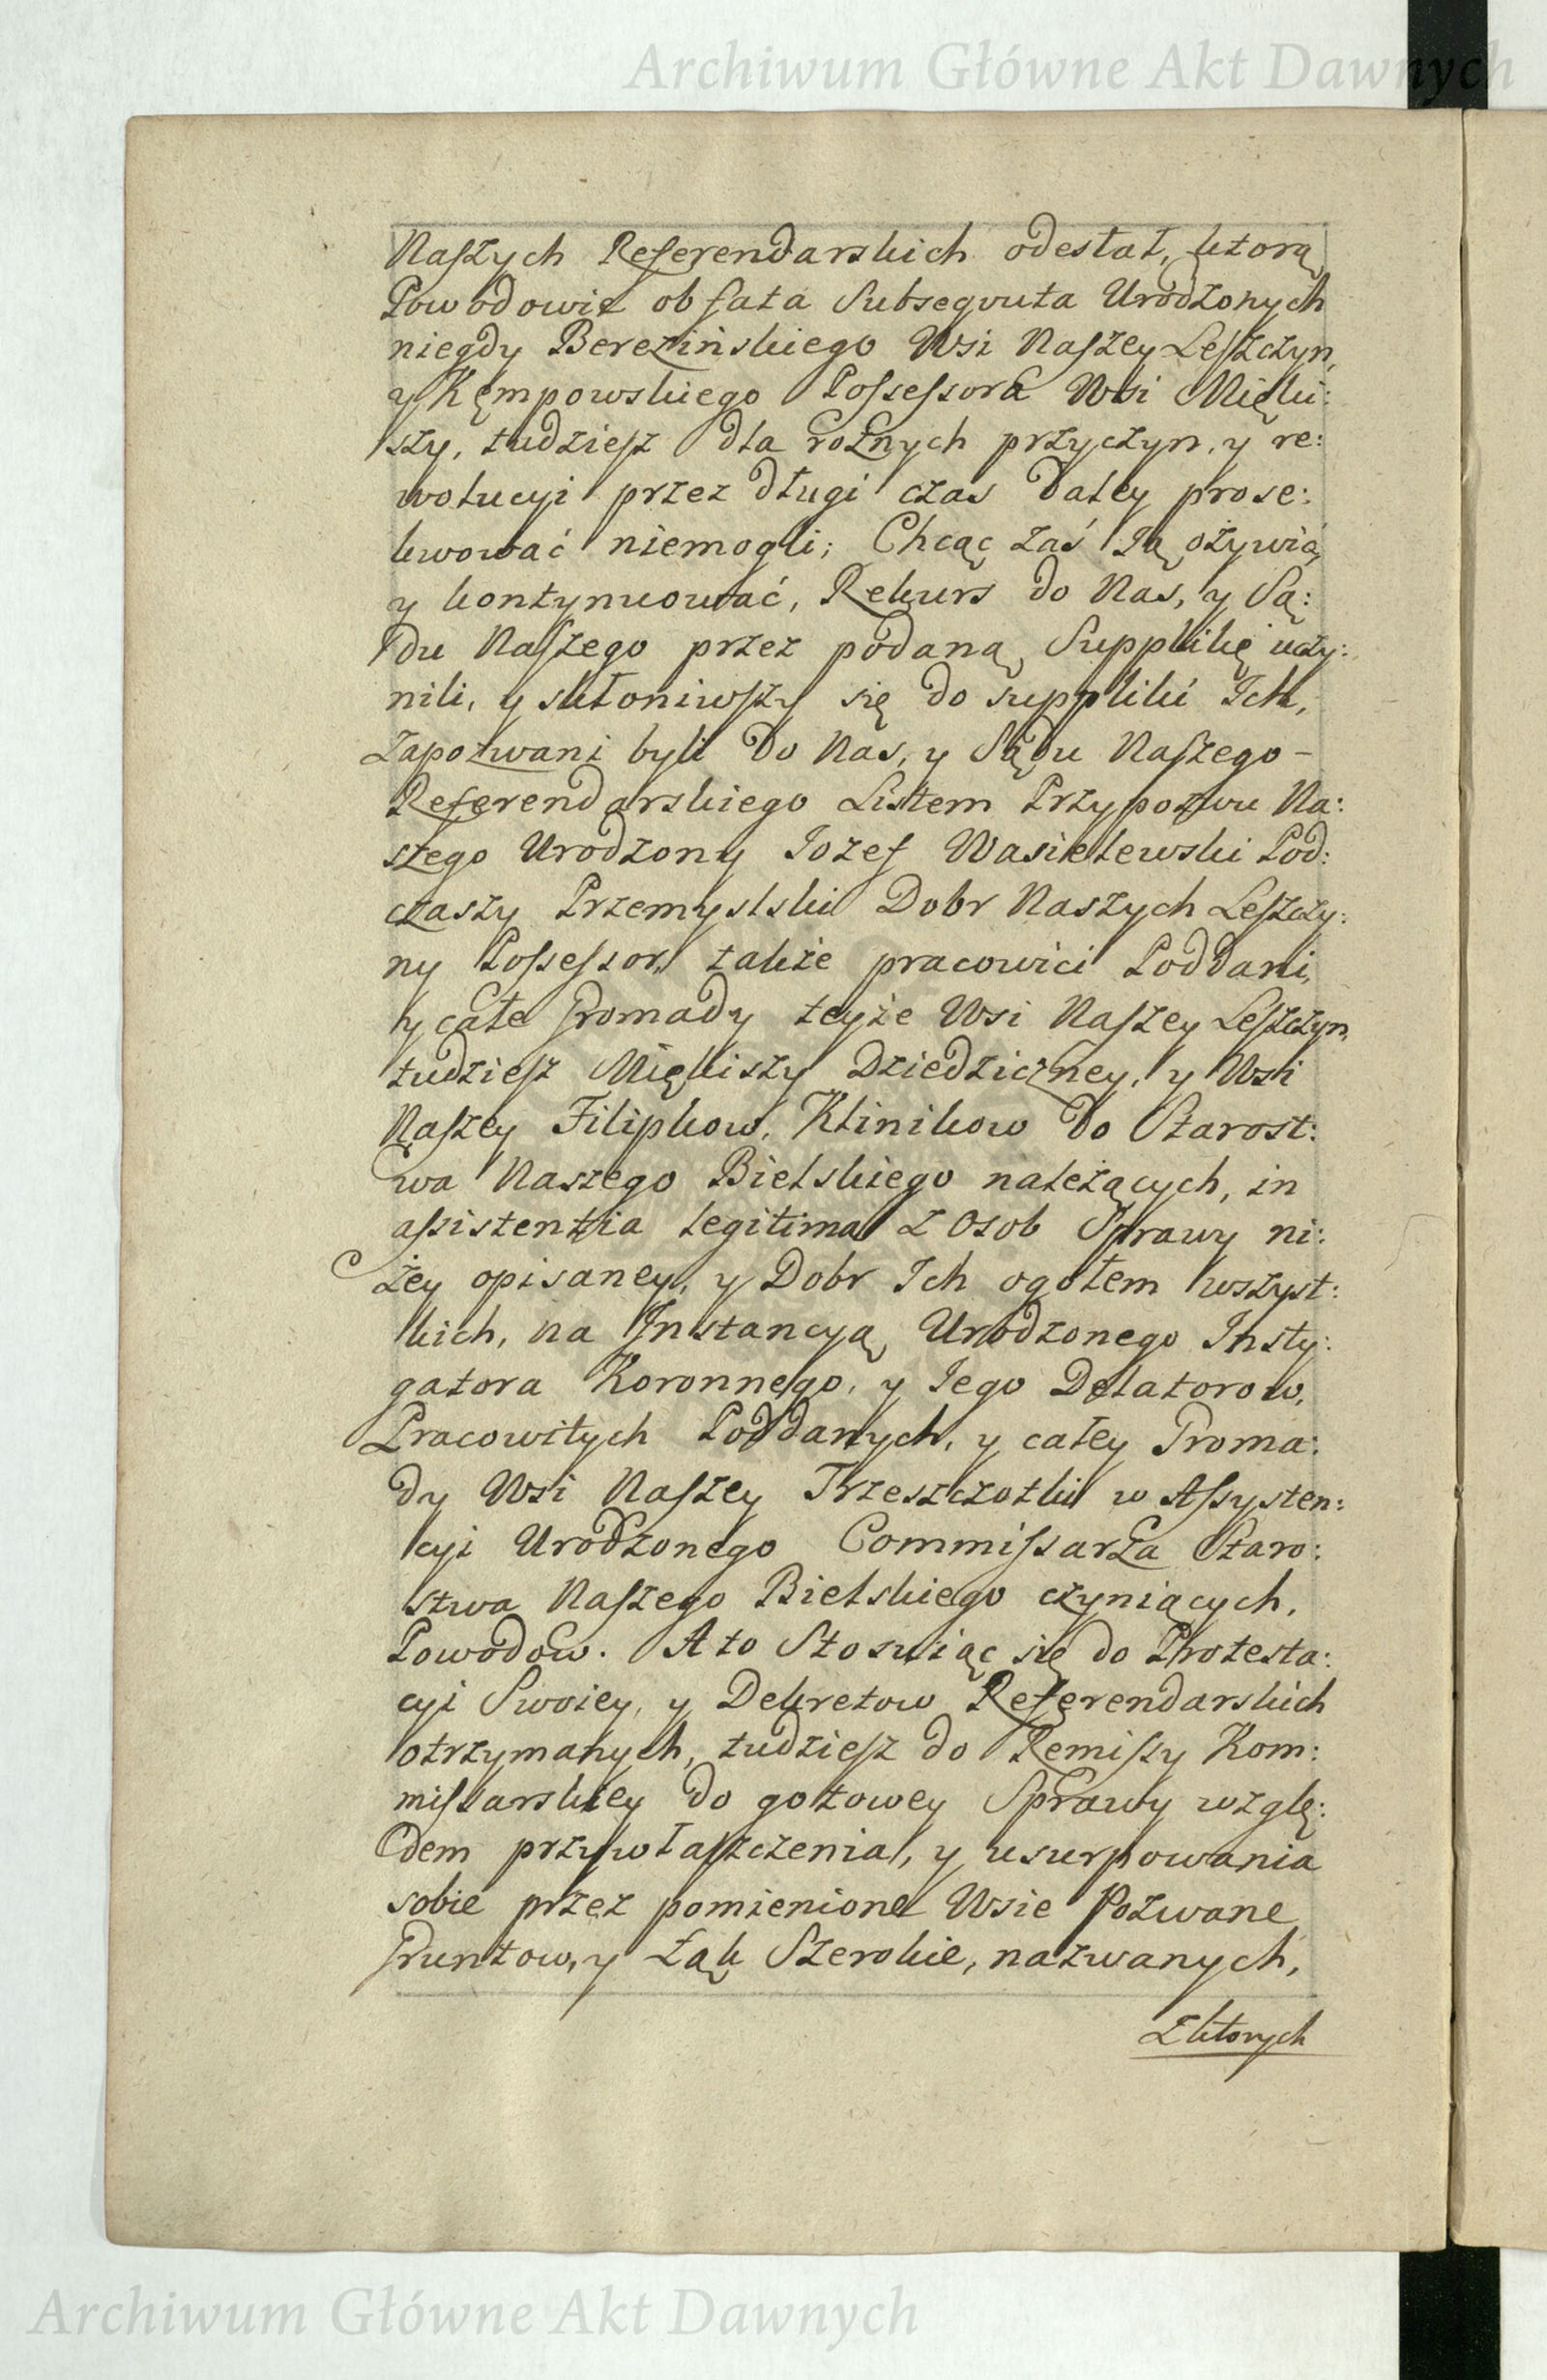 Archiwum Główne Akt Dawnych
Naszych Referendarskich odesłał, ktorą
Powodowie ob fata Subsequuta Urodzonych
niegdy Berezińskiego Wsi Naszey Leszczyn,
y Kępowskiego Possessora Wsi Mięki:
szy, tudziesz dla rożnych przyczyn, y re:
wolucyi przez długi czas daley prose:
kwować niemogli; Chcąc zaś Ją ożywić,
y kontynuować, Rekurs do Nas, y Są:
du Naszego przez podaną Supplikę uczy:
nili, y skłoniwszy się do suppliki Ich,
Zapozwani byli do Nas, y Sądu Naszego –
Referendarskiego Listem Przypozwu Na:
szego Urodzony Jozef Wasielewski Pod:
czaszy Przemyslski Dobr Naszych Leszczy:
ny Possessor, także pracowici Poddani,
y całe Gromady teyże Wsi Naszey Leszczyn,
tudziesz Miękiszy Dziedziczney, y Wsi
Naszey Filipkow, Klinikow do Starost:
wa Naszego Bielskiego należących, in
assistentia legitima z Osob Sprawy ni:
żey opisaney, y Dobr Ich ogołem wszyst:
kich, na Instancyą Urodzonego Insty:
gatora Koronnego, y Jego Delatorow,
Pracowitych Poddanych, y całey Groma:
dy Wsi Naszey Trzeszczotki w Assysten:
cyi Urodzonego Commissarza Staro:
stwa Naszego Bielskiego czyniących,
Powodow. A to Stosuiąc się do Protesta:
cyi Swoiey, y Dekretow Referendarskich
otrzymanych, tudziesz do Remissy Kom:
missarskiey do gotowey Sprawy wzglę:
dem przywłaszczenia, y usurpowania
sobie przez pomienione Wsie Pozwane
Gruntow, y Łąk Szerokie, nazwanych,
Zktorych
Archiwum Główne Akt Dawnych